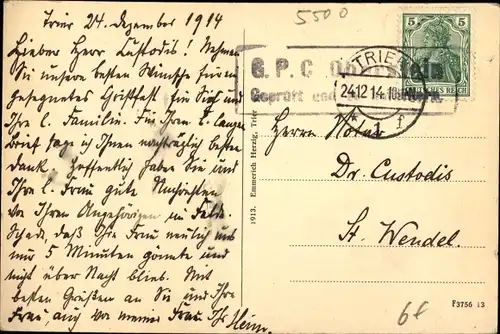 Trier 24. Dezember 1914
Lieber Herr Custodis! Nehmen
Sie unsere besten Wünsche für ein
gesegnetes Christfest für Sie und
Ihre l. Familie. Für Ihren l. langen
Brief sage ich Ihnen nachträglich besten
Dank. Hoffentlich haben Sie und
Ihre l. Frau gute Nachrichten
von Ihren Angehörigen im Felde.
Schade, daß Ihre Frau neulich uns
nur 5 Minuten gönnte und
nicht über Nacht blieb. Mit
besten Grüßen an Sie und Ihre
Frau, auch von meiner Frau Ihr Heim.
1913. Emmerich Herzig, Trier
5500
G.P.C. Oberstein
Geprüft und
TRIER
24.12.14. 10
* 1 f
5 5
DEUTSCHES REICH
Herrn Notar
Dr. Custodis
St. Wendel.
F3756 13
6f